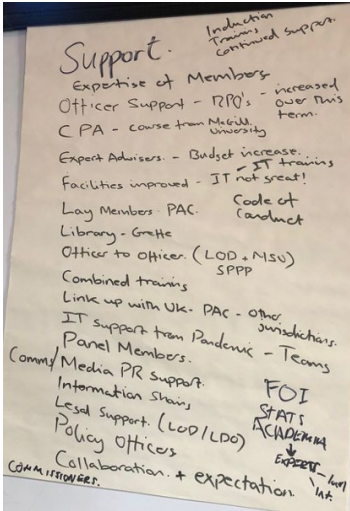 Support.
Induction
Training
Continued Support.
Expertise of Members
Officer Support - RPO's - increased
over this
term.
CPA - course from McGill
University
Expert Advisers. - Budget increase.
- IT training
Facilities improved - IT not great!
Lay Members - PAC.
Code of
Conduct
Library - Grette
Officer to Officer. (LOD + MSU)
SPPP
Combined training
Link up with UK - PAC - other
jurisdictions.
IT Support from Pandemic - Teams
Panel Members.
Comms/Media PR support.
Information Sharing
Legal Support. (LOD/LDO)
Policy Officers
Collaboration. + expectation.
COMMISSIONERS.
FOI
STATS
ACADEMIA
↓
EXPERTS
Int.